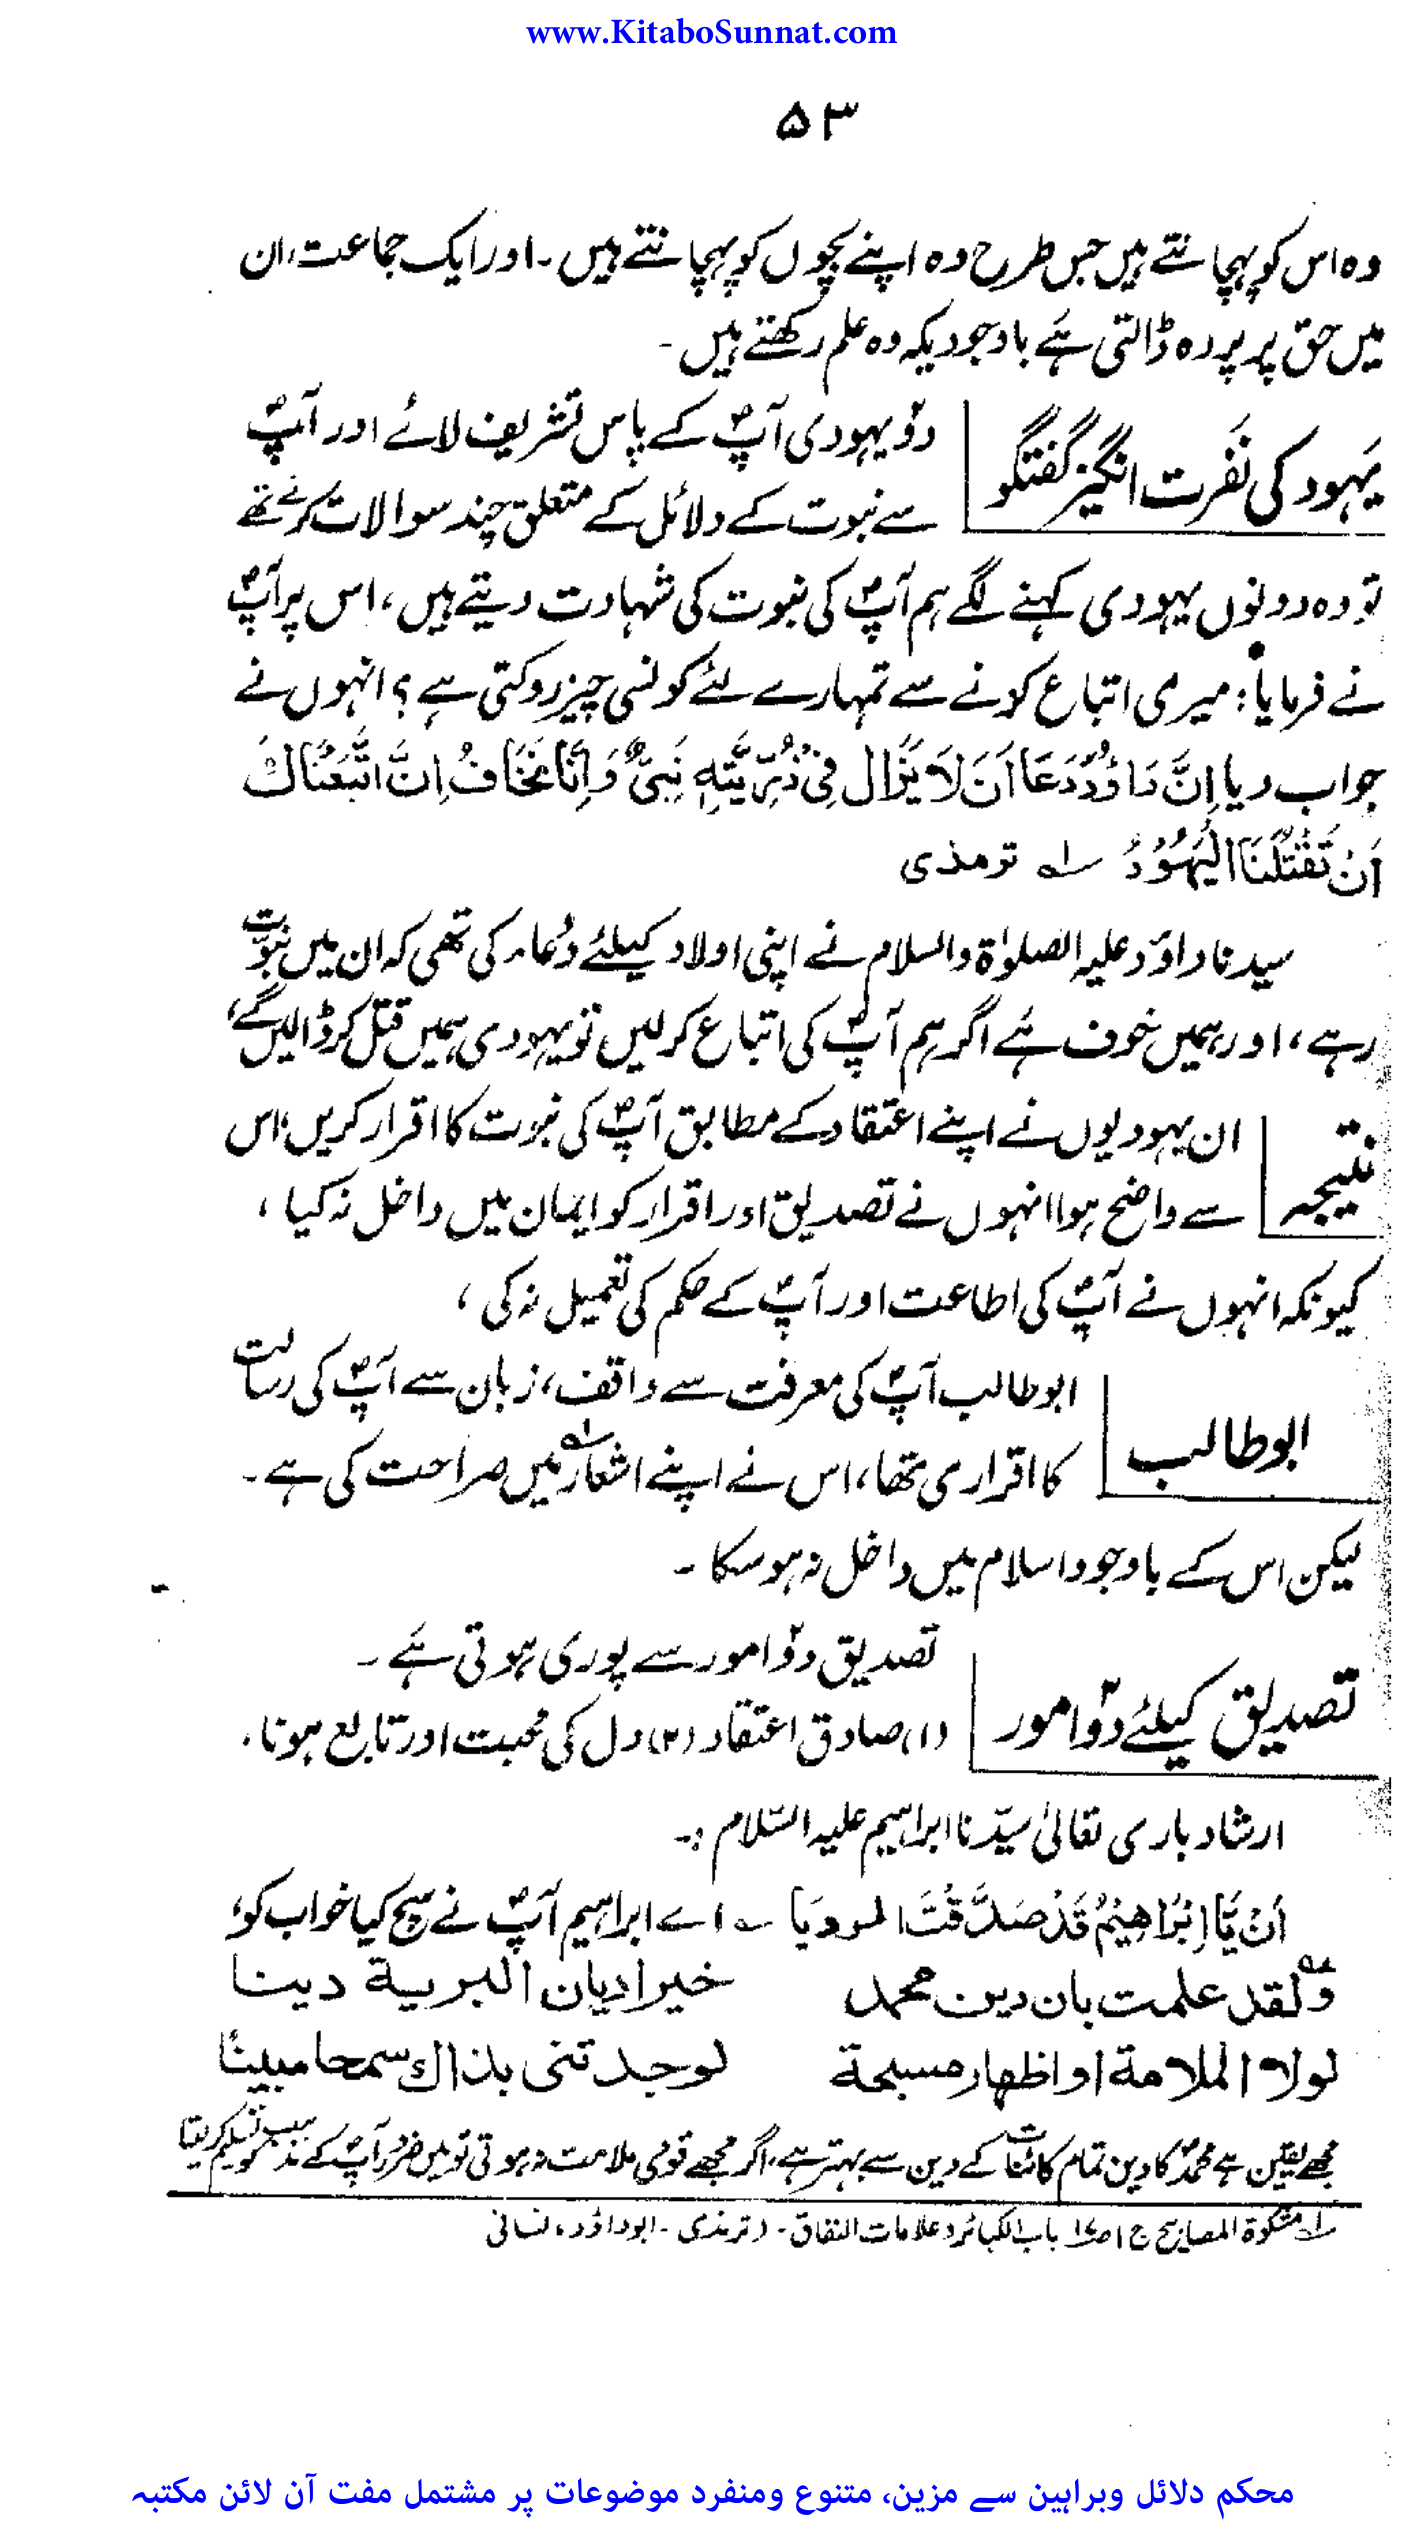 www.KitaboSunnat.com
۵۳
وہ اس کو پہچانتے ہیں جس طرح وہ اپنے بچوں کو پہچانتے ہیں۔ اور ایک جماعت ان
میں حق پر پردہ ڈالتی ہے باوجودیکہ وہ علم رکھتے ہیں۔
یہود کی نفرت انگیز گفتگو
دو یہودی آپؐ کے پاس تشریف لائے اور آپؐ
سے نبوت کے دلائل کے متعلق چند سوالات کرنے تھے
تو وہ دونوں یہودی کہنے لگے ہم آپؐ کی نبوت کی شہادت دیتے ہیں، اس پر آپؐ
نے فرمایا: میری اتباع کونے سے تمہارے لئے کونسی چیز روکتی ہے؟ انہوں نے
جواب دیا اِنَّ دَاوُدَ دَعَا اَنَ لَا یَزَالَ فِیْ ذُرِّیَّتِهٖ نَبِیٌّ وَاِنَّا نَخَافُ اِنَّ اتَّبَعْنَاكَ
اَنْ تَقْتُلَنَا الْیَهُوْدُ ؎۱ ترمذی
سیدنا داؤد علیہ الصلوٰۃ والسلام نے اپنی اولاد کیلئے دُعاء کی تھی کہ ان میں نبوّت
رہے، اور ہمیں خوف ہے اگر ہم آپؐ کی اتباع کرلیں تو یہودی ہمیں قتل کر ڈالیں گے،
نتیجہ
ان یہودیوں نے اپنے اعتقاد کے مطابق آپؐ کی نبوت کا اقرار کریں، اس
سے واضح ہوا انہوں نے تصدیق اور اقرار کو ایمان میں داخل نہ کیا،
کیونکہ انہوں نے آپؐ کی اطاعت اور آپؐ کے حکم کی تعمیل نہ کی،
ابوطالب
ابوطالب آپؐ کی معرفت سے واقف، زبان سے آپؐ کی رسالت
کا اقراری تھا، اس نے اپنے اشعار میں صراحت کی ہے۔
لیکن اس کے باوجود اسلام میں داخل نہ ہو سکا۔
تصدیق کیلئے دو امور
تصدیق دو امور سے پوری ہوتی ہے۔
(۱) صادق اعتقاد (۲) دل کی محبت اور تابع ہونا۔
ارشاد باری تعالیٰ سیّدنا ابراہیم علیہ السّلام :۔
اَنْ یَّا اِبْرَاهِیْمُ قَدْ صَدَّقْتَ الرویا ؎ اے ابراہیم آپؐ نے سچ کیا خواب کو،
ولقد علمت بان دین محمد خیر ادیان البریة دینا
لولا الملامة او اظهار مسبحة لوجد تنی بذاك سمحا مبینًا
مجھے یقین ہے محمدؐ کا دین تمام کائنات کے دین سے بہتر ہے، اگر مجھے قومی ملامت نہ ہوتی تو میں ضرور آپؐ کے مذہب کو تسلیم کر لیتا
؎۱ مشکوٰۃ المصابیح ج ۱ ص۱۷ باب الکبائر و علامات النفاق۔ (ترمذی۔ ابوداؤد، نسائی
محکم دلائل وبراہین سے مزین، متنوع ومنفرد موضوعات پر مشتمل مفت آن لائن مکتبہ